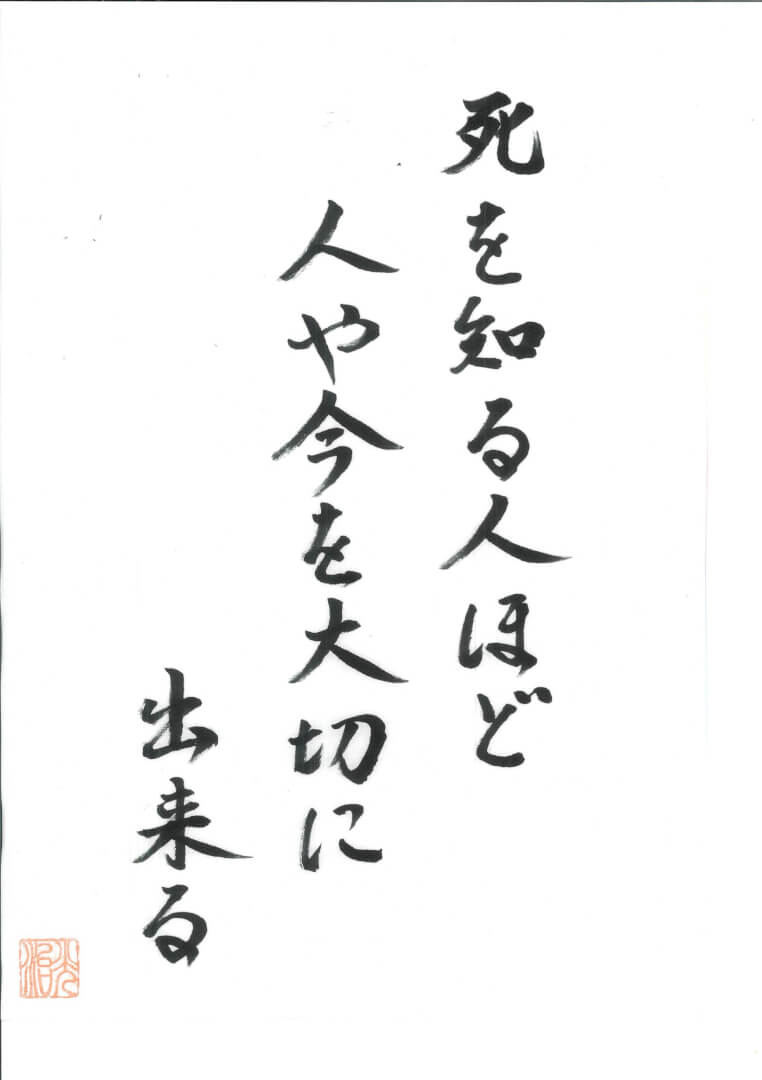 死を知る人ほど
人や今を大切に
出来る